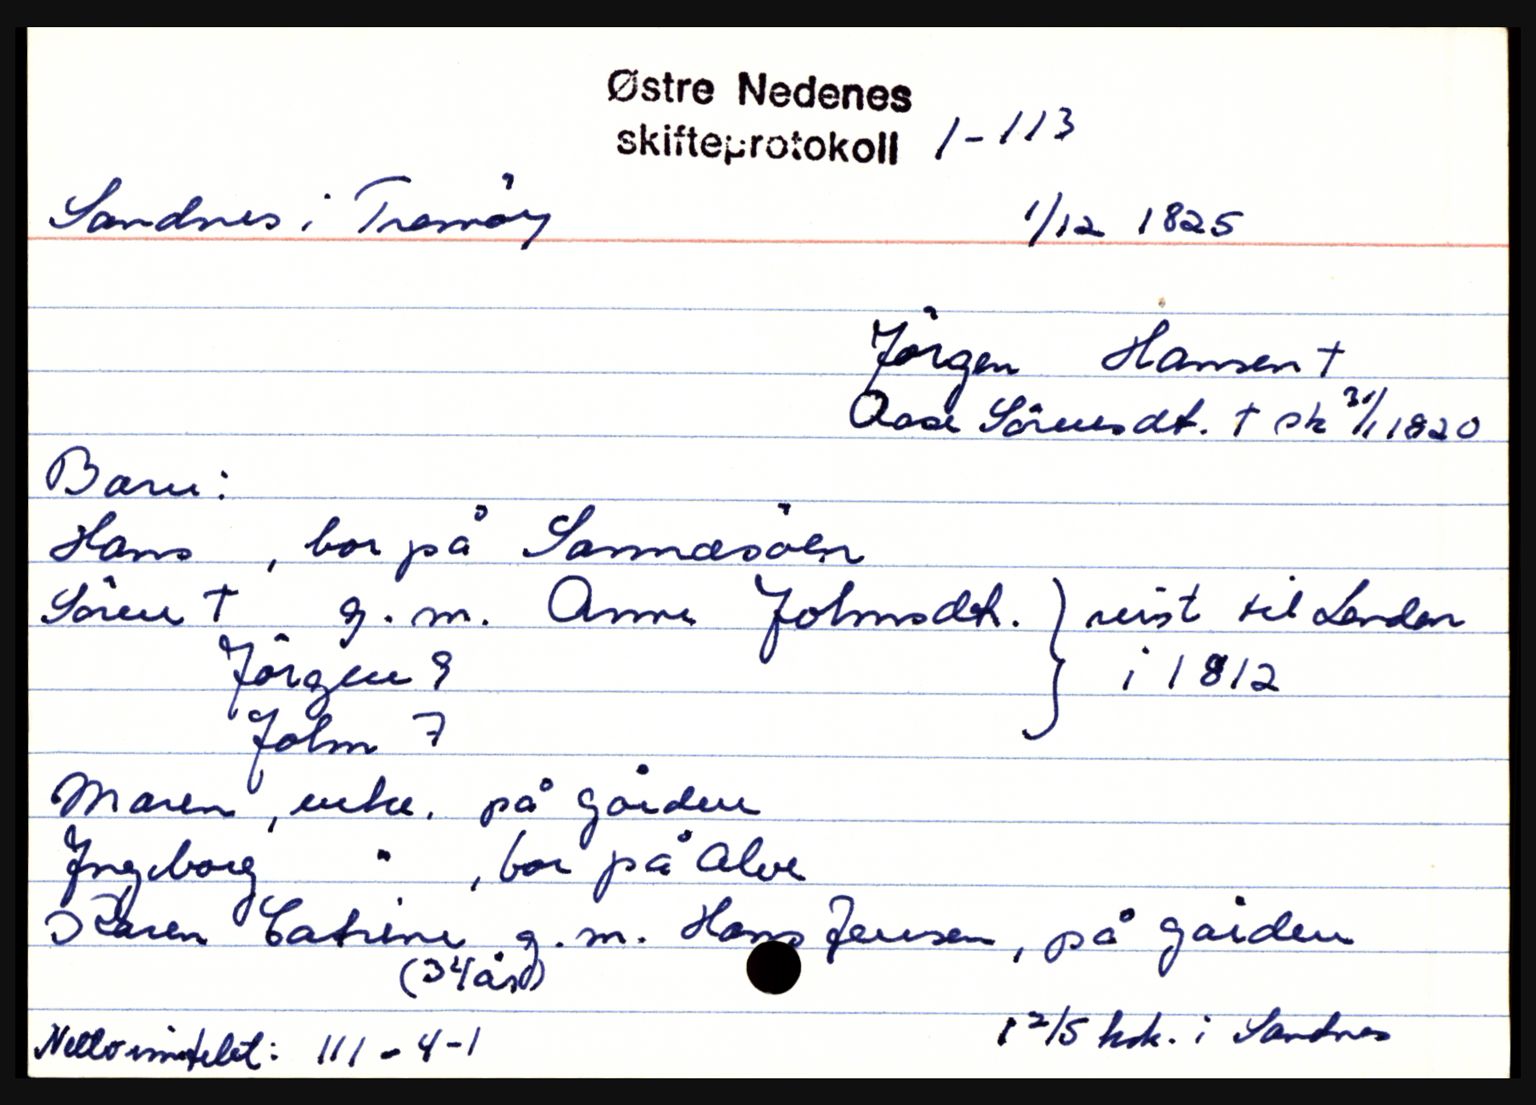 Østre Nedenes
skifteprotokoll 1-113
Sandnes i Tromöy 1/12 1825
Jörgen Hansen †
Aase Sörensdt. † sk 31/1 1820
Barn:
Hans , bor på Sannesöen
Sören † g. m. Anne Johnsdt. } reist til London
Jörgen 9 i 1812
John 7
Maren , enke. på gården
Ingeborg " , bor på Alve
Karen Catrine g. m. Hans Jensen, på gården
(34 år)
Netto innteket: 111-4-1 1 2/5 hdr. i Sandnes